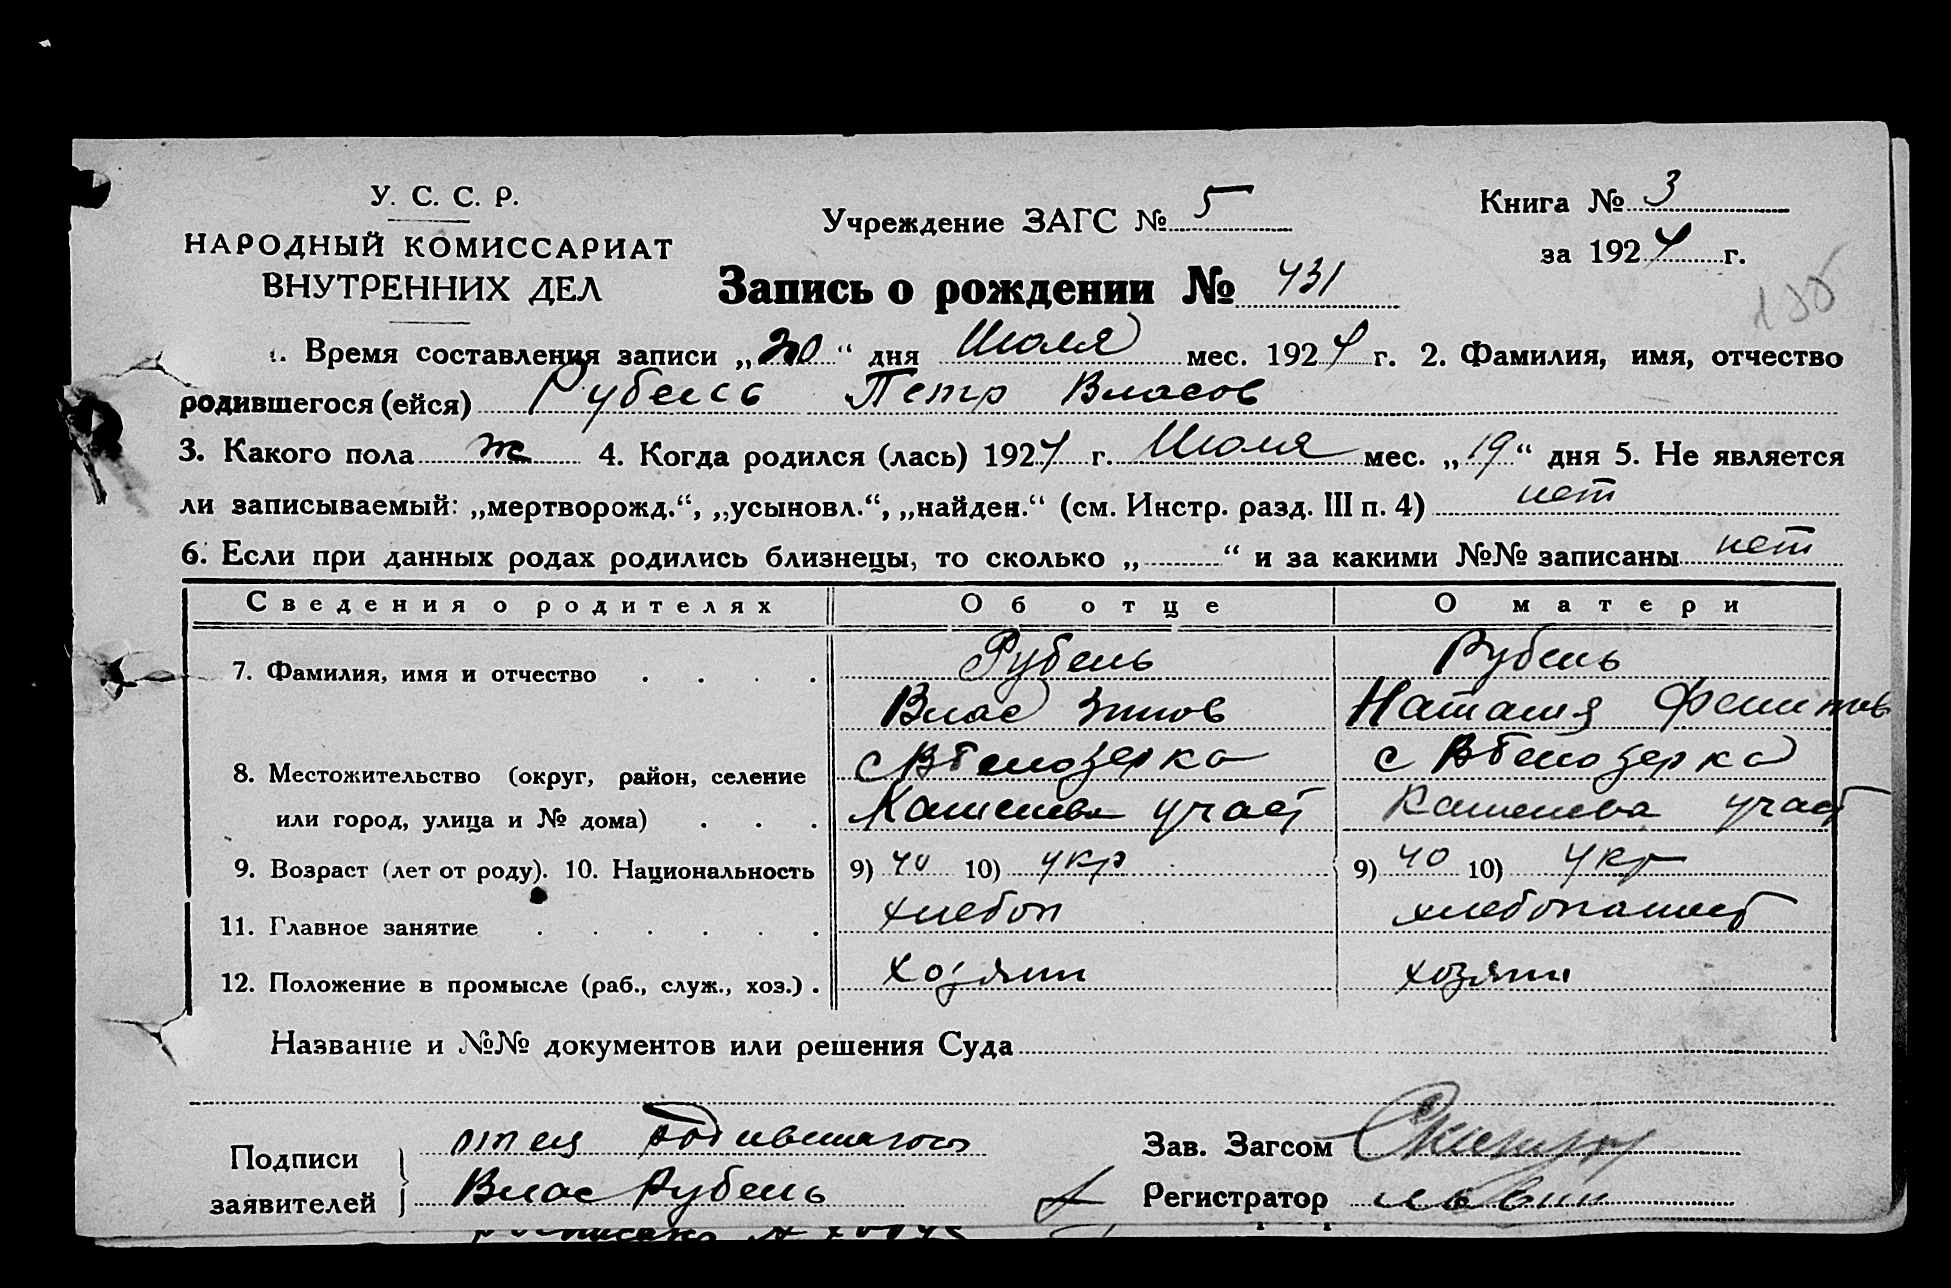 У. С. С. Р.
НАРОДНЫЙ КОМИССАРИАТ
ВНУТРЕННИХ ДЕЛ
Учреждение ЗАГС № 5
Книга № 3
за 1924 г.
Запись о рождении № 431
1. Время составления записи „20“ дня Июля мес. 1924 г. 2. Фамилия, имя, отчество
родившегося (ейся) Рубель Петр Власов
3. Какого пола м 4. Когда родился (лась) 1924 г. Июля мес. „19“ дня 5. Не является
ли записываемый: „мертворожд.“, „усыновл.“, „найден.“ (см. Инстр. разд. III п. 4) нет
6. Если при данных родах родились близнецы, то сколько „ “ и за какими №№ записаны нет
Сведения о родителях Об отце О матери
7. Фамилия, имя и отчество Рубель Рубель
Влас Наталия
8. Местожительство (округ, район, селение с Вбелозерка с Вбелозерка
или город, улица и № дома) участ участ
9. Возраст (лет от роду). 10. Национальность 9) 40 10) укр 9) 40 10) укр
11. Главное занятие хлебоп хлебопашест
12. Положение в промысле (раб., служ., хоз.) хозяин хозяин
Название и №№ документов или решения Суда
Подписи заявителей отец родившагось
Влас Рубель
Зав. Загсом
Регистратор